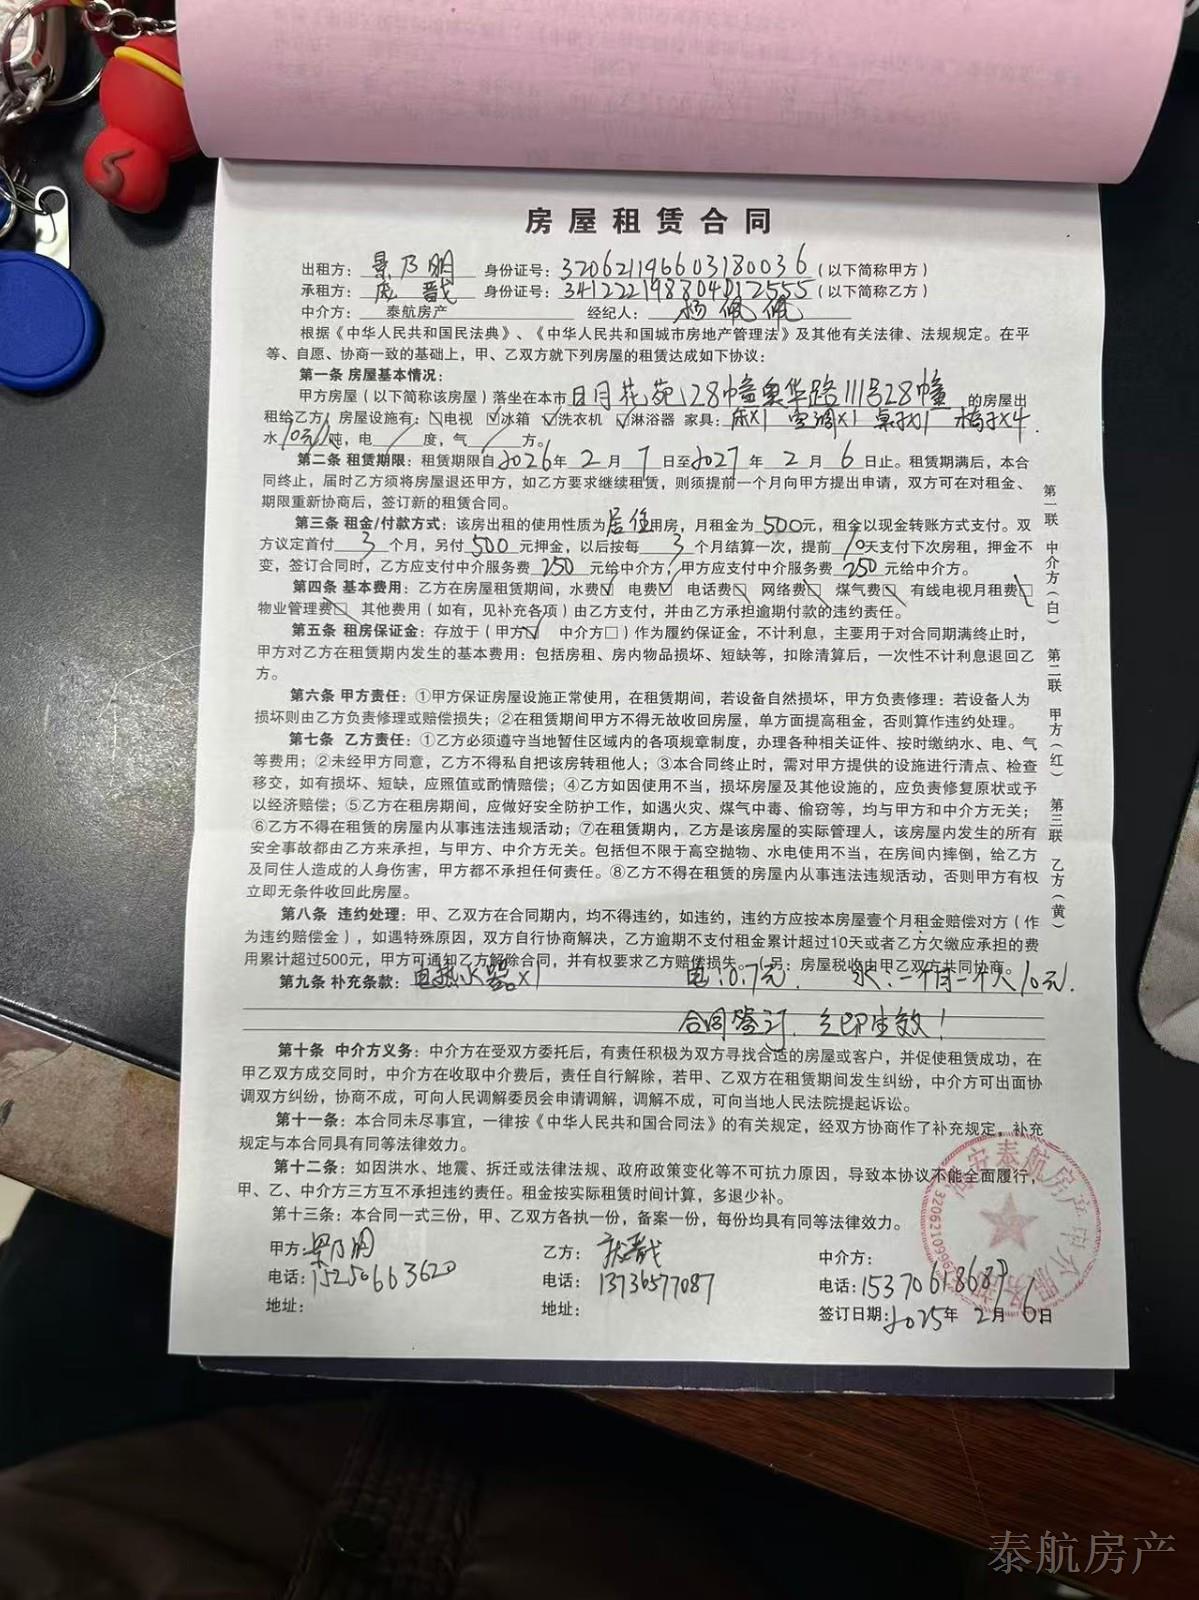 房屋租赁合同
出租方：景乃明 身份证号：320621196603180036（以下简称甲方）
承租方： 身份证号：341222198804012555（以下简称乙方）
中介方：泰航房产 经纪人：杨佩佩
根据《中华人民共和国民法典》、《中华人民共和国城市房地产管理法》及其他有关法律、法规规定。在平
等、自愿、协商一致的基础上，甲、乙双方就下列房屋的租赁达成如下协议：
第一条 房屋基本情况：
甲方房屋（以下简称该房屋）落坐在本市日月花苑128幢奥华路111号28幢的房屋出
租给乙方，房屋设施有：□电视 ☑冰箱 ☑洗衣机 ☑淋浴器 家具：床x1 空调x1 桌子x1 椅子x4.
水10元/吨，电 度，气 方。
第二条 租赁期限：租赁期限自2026年2月7日至2027年2月6日止。租赁期满后，本合
同终止，届时乙方须将房屋退还甲方，如乙方要求继续租赁，则须提前一个月向甲方提出申请，双方可在对租金、
期限重新协商后，签订新的租赁合同。
第三条 租金/付款方式：该房出租的使用性质为居住用房，月租金为500元，租金以现金转账方式支付。双
方议定首付3个月，另付500元押金，以后按每3个月结算一次，提前10天支付下次房租，押金不
变，签订合同时，乙方应支付中介服务费250元给中介方，甲方应支付中介服务费250元给中介方。
第四条 基本费用：乙方在房屋租赁期间，水费☑ 电费☑ 电话费□ 网络费□ 煤气费□ 有线电视月租费□
物业管理费□ 其他费用（如有，见补充各项）由乙方支付，并由乙方承担逾期付款的违约责任。
第五条 租房保证金：存放于（甲方☑ 中介方□）作为履约保证金，不计利息，主要用于对合同期满终止时，
甲方对乙方在租赁期内发生的基本费用：包括房租、房内物品损坏、短缺等，扣除清算后，一次性不计利息退回乙
方。
第六条 甲方责任：①甲方保证房屋设施正常使用，在租赁期间，若设备自然损坏，甲方负责修理：若设备人为
损坏则由乙方负责修理或赔偿损失；②在租赁期间甲方不得无故收回房屋，单方面提高租金，否则算作违约处理。
第七条 乙方责任：①乙方必须遵守当地暂住区域内的各项规章制度，办理各种相关证件、按时缴纳水、电、气
等费用；②未经甲方同意，乙方不得私自把该房转租他人；③本合同终止时，需对甲方提供的设施进行清点、检查
移交，如有损坏、短缺，应照值或酌情赔偿；④乙方如因使用不当，损坏房屋及其他设施的，应负责修复原状或予
以经济赔偿；⑤乙方在租房期间，应做好安全防护工作，如遇火灾、煤气中毒、偷窃等，均与甲方和中介方无关；
⑥乙方不得在租赁的房屋内从事违法违规活动；⑦在租赁期内，乙方是该房屋的实际管理人，该房屋内发生的所有
安全事故都由乙方来承担，与甲方、中介方无关。包括但不限于高空抛物、水电使用不当，在房间内摔倒，给乙方
及同住人造成的人身伤害，甲方都不承担任何责任。⑧乙方不得在租赁的房屋内从事违法违规活动，否则甲方有权
立即无条件收回此房屋。
第八条 违约处理：甲、乙双方在合同期内，均不得违约，如违约，违约方应按本房屋壹个月租金赔偿对方（作
为违约赔偿金），如遇特殊原因，双方自行协商解决，乙方逾期不支付租金累计超过10天或者乙方欠缴应承担的费
用累计超过500元，甲方可通知乙方解除合同，并有权要求乙方赔偿损失。（另：房屋税收由甲乙双方共同协商。
第九条 补充条款：电热水器x1 电：0.7元. 水：一个月一个人10元.
合同签订，立即生效！
第十条 中介方义务：中介方在受双方委托后，有责任积极为双方寻找合适的房屋或客户，并促使租赁成功，在
甲乙双方成交同时，中介方在收取中介费后，责任自行解除，若甲、乙双方在租赁期间发生纠纷，中介方可出面协
调双方纠纷，协商不成，可向人民调解委员会申请调解，调解不成，可向当地人民法院提起诉讼。
第十一条：本合同未尽事宜，一律按《中华人民共和国合同法》的有关规定，经双方协商作了补充规定，补充
规定与本合同具有同等法律效力。
第十二条：如因洪水、地震、拆迁或法律法规、政府政策变化等不可抗力原因，导致本协议不能全面履行，
甲、乙、中介方三方互不承担违约责任。租金按实际租赁时间计算，多退少补。
第十三条：本合同一式三份，甲、乙双方各执一份，备案一份，每份均具有同等法律效力。
甲方：景乃明 乙方： 中介方：
电话：15250663620 电话：13736577087 电话：15370618689
地址： 地址： 签订日期：2025年2月6日
第一联 中介方（白） 第二联 甲方（红） 第三联 乙方（黄）
海安泰航房产中介服务
泰航房产